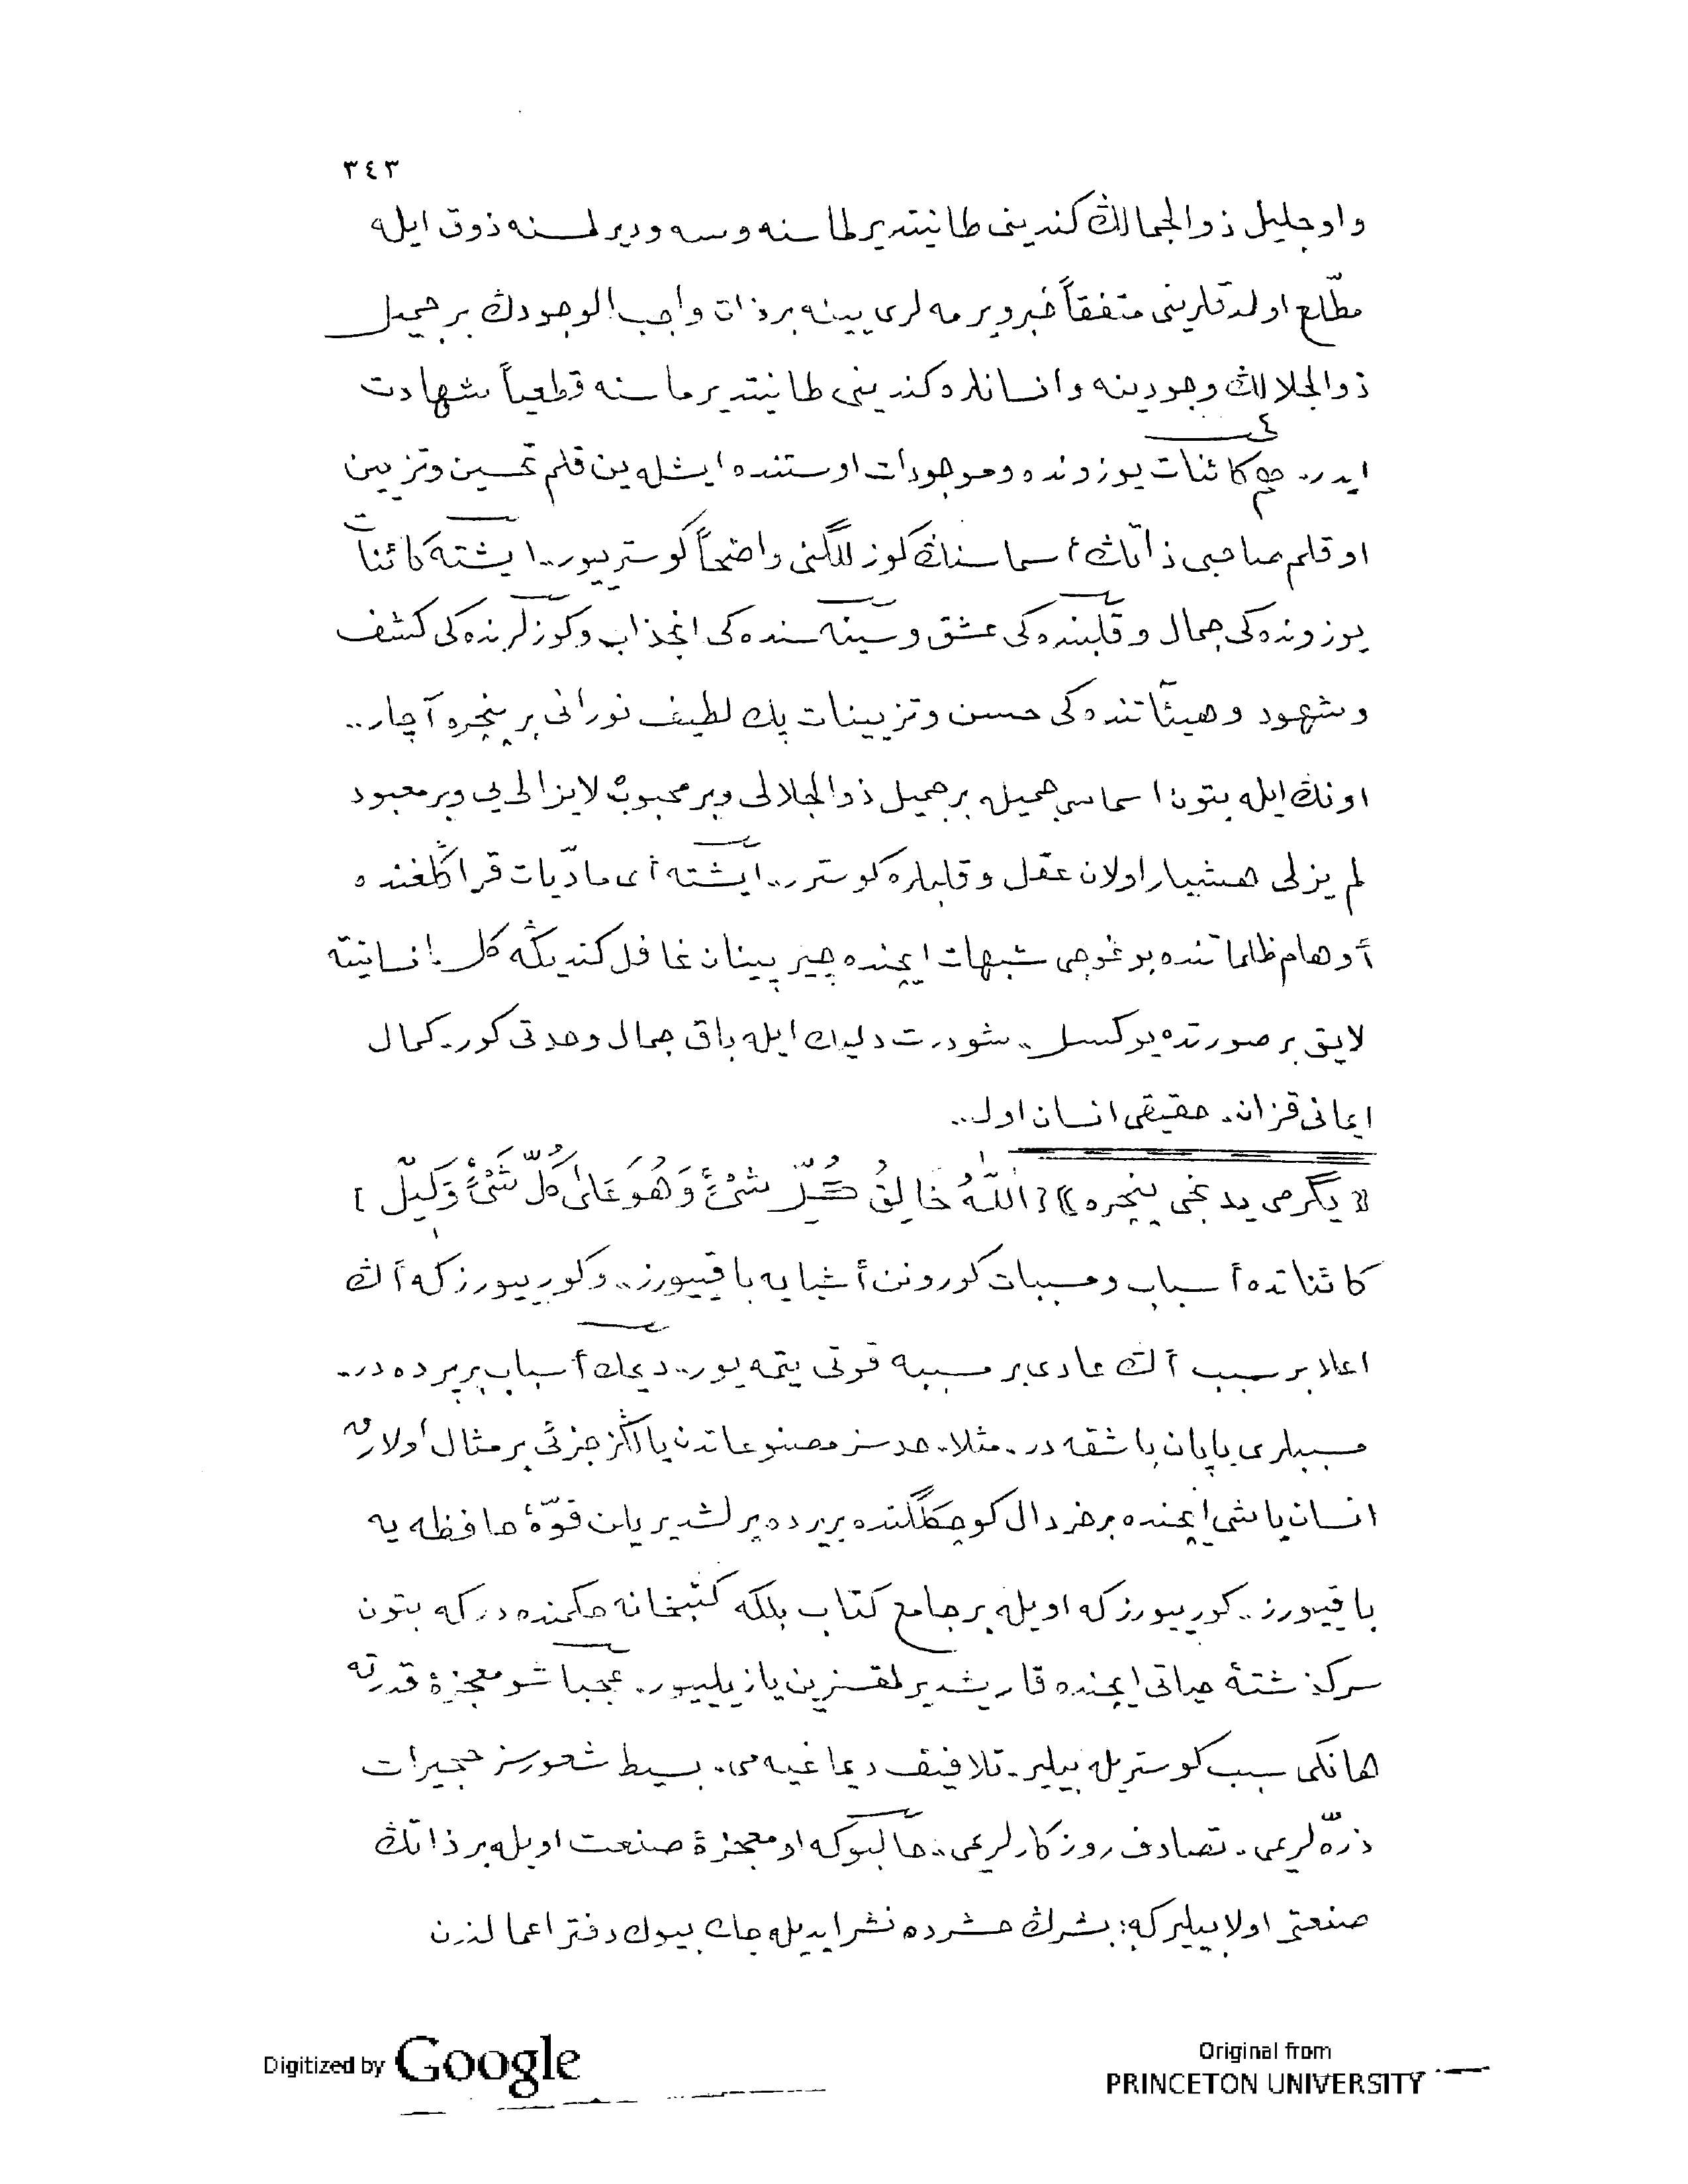 ٣٤٣
و او جليل ذو الجمالڭ كندينى طانيتديرلماسنه و سه وديرلمسنه ذوق ايله
مطّلع اولدقلرينى متفقاً خبر ويرمه لرى يينه بر ذات واجب الوجودڭ بر جميل
ذو الجلالڭ وجودينه و انسانلره كندينى طانيتديرماسنه قطعياً شهادت
ايدر.. هم كائنات يوزونده و موجودات اوستنده ايشله ين قلم تحسين و تزيين
٤
او قلم صاحبى ذاتڭ أسماسنڭ كوزللگنى واضحاً كوستريیور.. ايشته كائنات
يوزونده كى جمال و قلبنده كى عشق و سينه سنده كى انجذاب و كوزلرنده كى كشف
و شهود و هيئاتنده كى حسن و تزيينات پك لطيف نورانى بر پنجره آچار..
اونڭ ايله بتون اسماسى جميله بر جميل ذو الجلالى و بر محبوب لايزالى يى و بر معبود
لم يزلى هشيار اولان عقل و قلبلره كوسترر.. ايشته أى ماديّات قراڭلغنده
أوهام ظلماتنده بوغوجى شبهات ايچنده چيرپينان غافل كنديڭه كل. انسانيته
لايق بر صورتده يوكسل.. شو درت دليك ايله باق جمال وحدتى كور. كمال
ايمانى قزان. حقيقى انسان اول..
﴿يگرمى يدنجى پنجره﴾ [اَللّٰهُ خَالِقُ كُلِّ شَىْءٍ وَهُوَ عَلٰى كُلِّ شَىْءٍ وَكِيلٌ]
كائناتده أسباب و مسببات كورونن أشيايه باقييورز.. و كورييورز كه أڭ
اعلا بر سبب أڭ عادى بر مسببه قوتى يتمه يور.. ديمك أسباب بر پرده در..
مسببلرى ياپان باشقه در. مثلا. حدسز مصنوعاتدن يالڭز جزئى بر مثال اولارق
انسان باشى ايچنده بر خردال كوچكلگنده بر يرده يرلشديريلن قوّۀ حافظه يه
باقييورز.. كورييورز كه اويله بر جامع كتاب بلكه كتبخانه حكمنده در كه بتون
سركذشتۀ حياتى ايچنده قاريشديرلمقسزين يازيليیور. عجبا شو معجزۀ قدرته
هانكى سبب كوستريله بيلير. تلافيف دماغيه مى. بسيط شعورسز حجيرات
ذرّه لرى مى. تصادف روزكارلرى مى.. حالبوكه او معجزۀ صنعت اويله بر ذاتڭ
صنعتى اولابيلير كه: بشرڭ حشرده نشر ايديله جك بيوك دفتر اعمالندن
Digitized by Google
Original from
PRINCETON UNIVERSITY